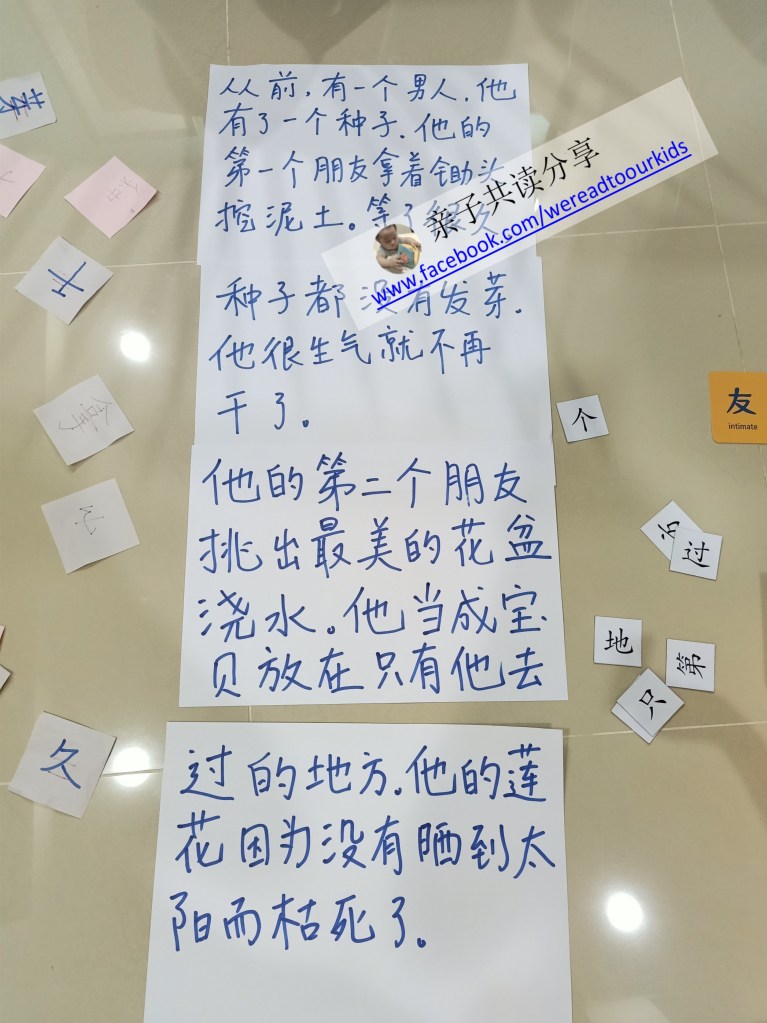 从前,有一个男人.他
有了一个种子.他的
第一个朋友拿着锄头
挖泥土。等了很久
种子都没有发芽.
他很生气就不再
干了。
他的第二个朋友
挑出最美的花盆
浇水。他当成宝
贝放在只有他去
过的地方.他的莲
花因为没有晒到太
阳而枯死了。
亲子共读分享
www.facebook.com/wereadtoourkids
个
友
intimate
过
地
第
只
久